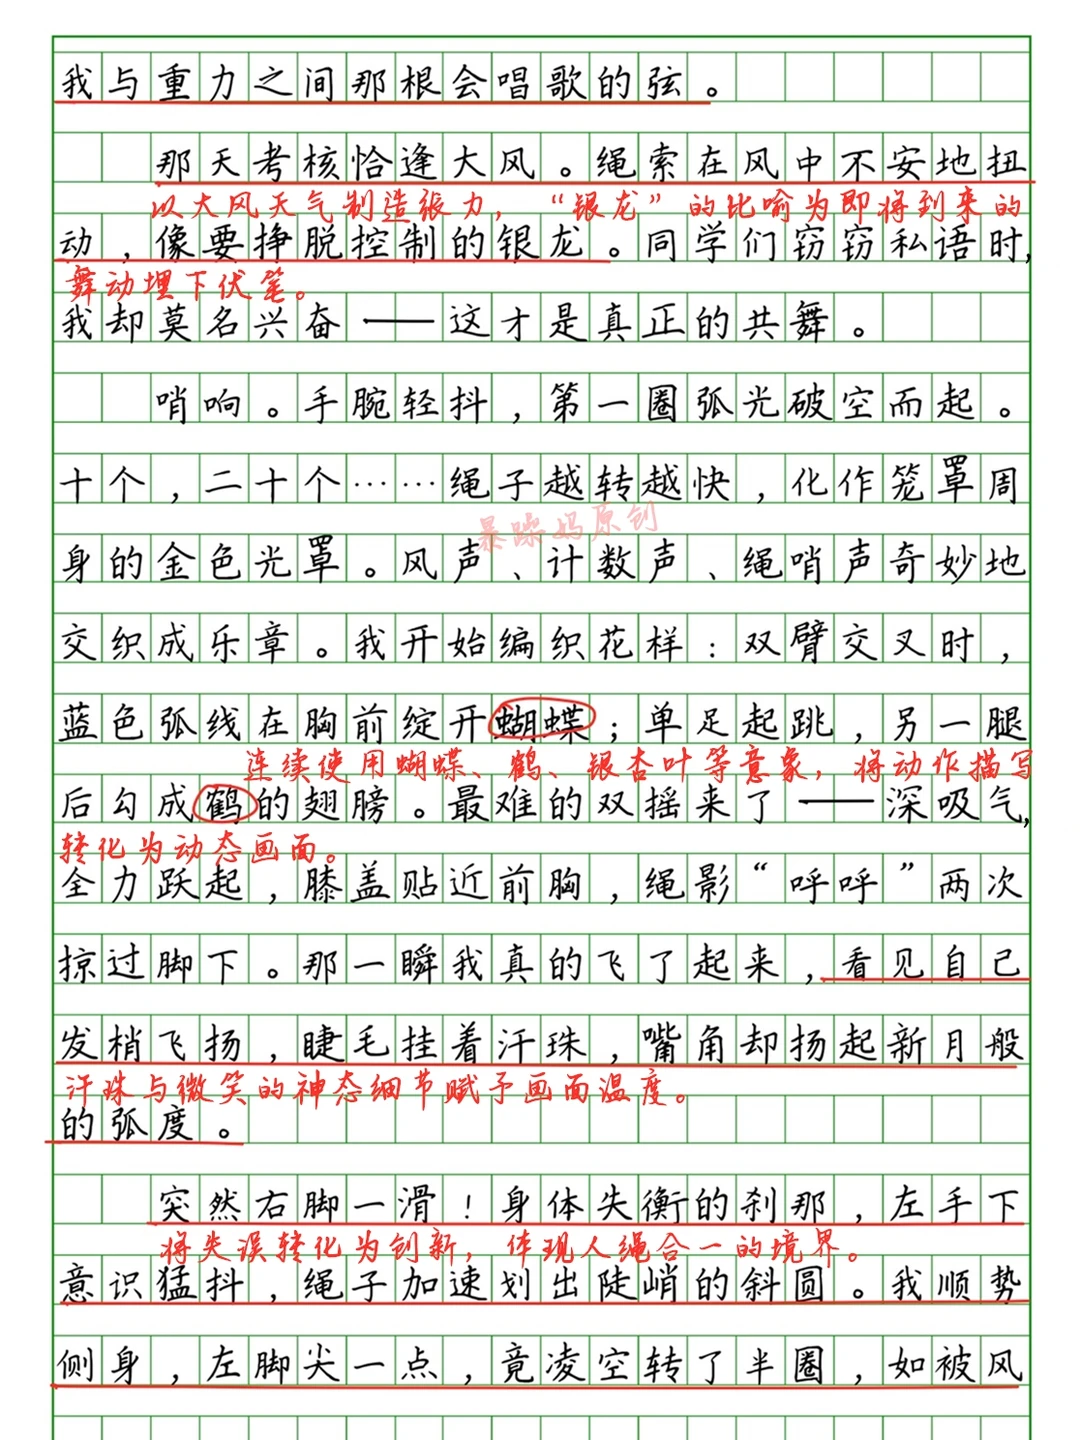 我与重力之间那根会唱歌的弦。
那天考核恰逢大风。绳索在风中不安地扭
以大风天气制造张力，“银龙”的比喻为即将到来的
动，像要挣脱控制的银龙。同学们窃窃私语时，
舞动埋下伏笔。
我却莫名兴奋——这才是真正的共舞。
哨响。手腕轻抖，第一圈弧光破空而起。
十个，二十个……绳子越转越快，化作笼罩周
暴躁妈原创
身的金色光罩。风声、计数声、绳哨声奇妙地
交织成乐章。我开始编织花样：双臂交叉时，
蓝色弧线在胸前绽开蝴蝶；单足起跳，另一腿
连续使用蝴蝶、鹤、银杏叶等意象，将动作描写
后勾成鹤的翅膀。最难的双摇来了——深吸气，
转化为动态画面。
全力跃起，膝盖贴近前胸，绳影“呼呼”两次
掠过脚下。那一瞬我真的飞了起来，看见自己
发梢飞扬，睫毛挂着汗珠，嘴角却扬起新月般
汗珠与微笑的神态细节赋予画面温度。
的弧度。
突然右脚一滑！身体失衡的刹那，左手下
将失误转化为创新，体现人绳合一的境界。
意识猛抖，绳子加速划出陡峭的斜圆。我顺势
侧身，左脚尖一点，竟凌空转了半圈，如被风